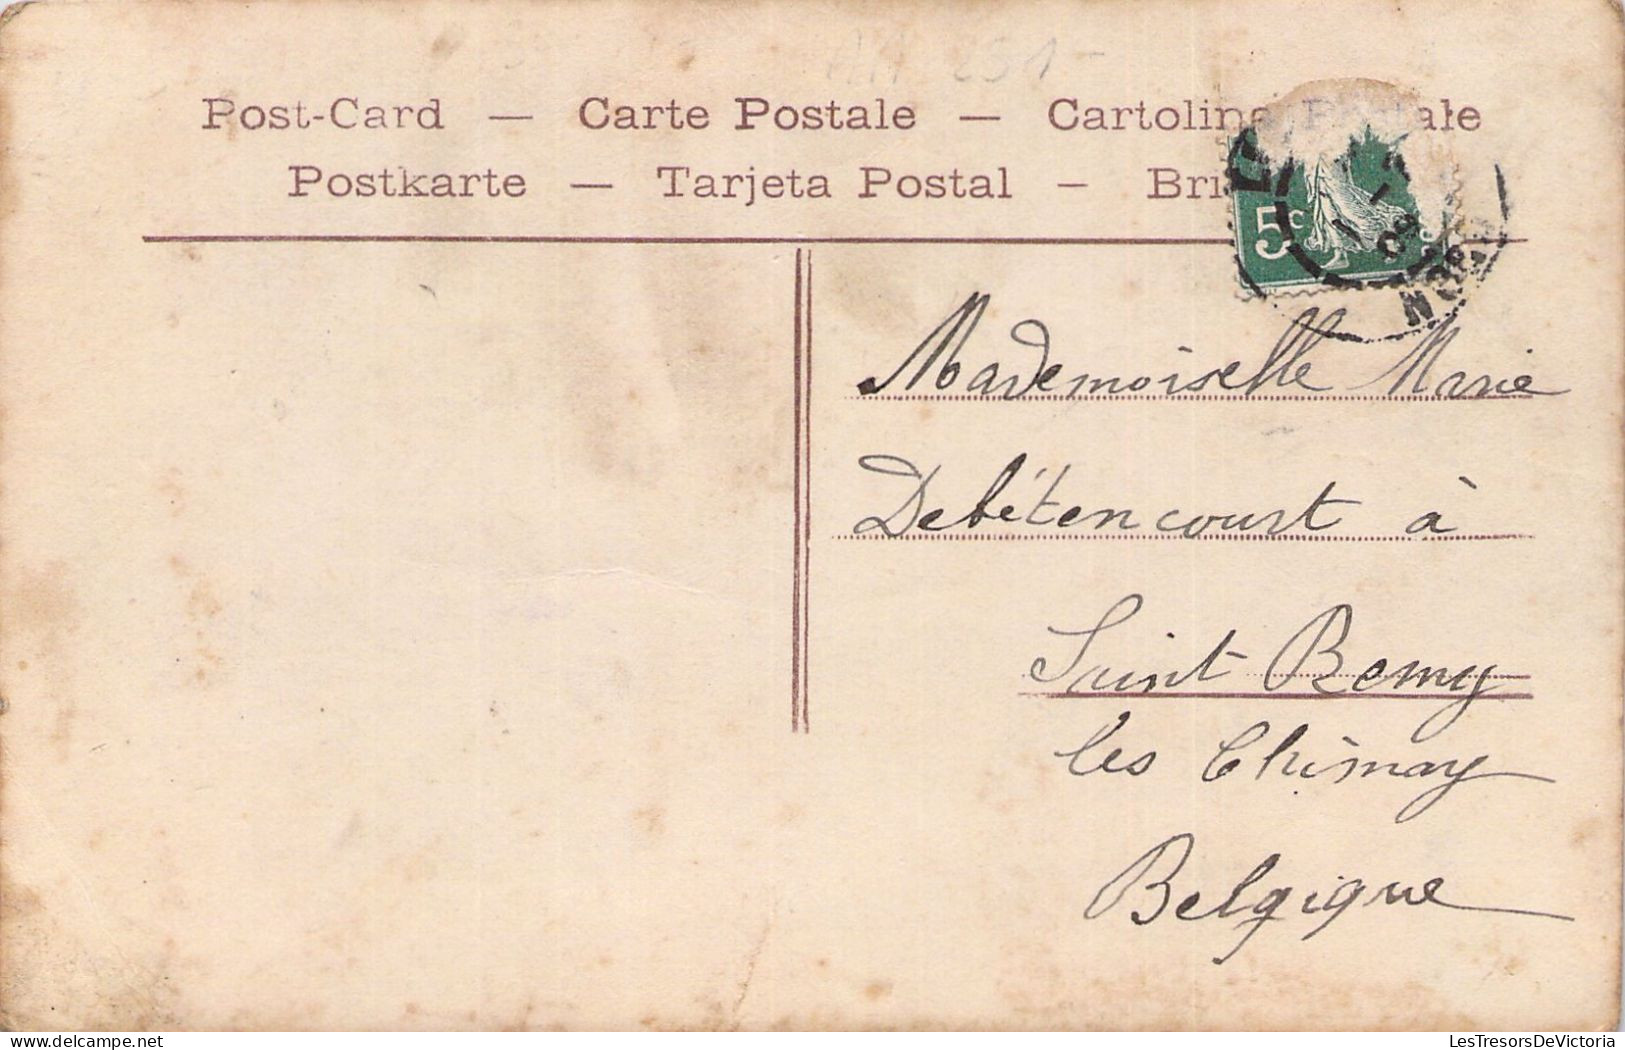 Post-Card — Carte Postale — Cartolina Postale
Postkarte — Tarjeta Postal —
5c
09
NORD
Mademoiselle Marie
Debétencourt à
Saint Remy
les Chimay
Belgique
LesTresorsDeVictoria